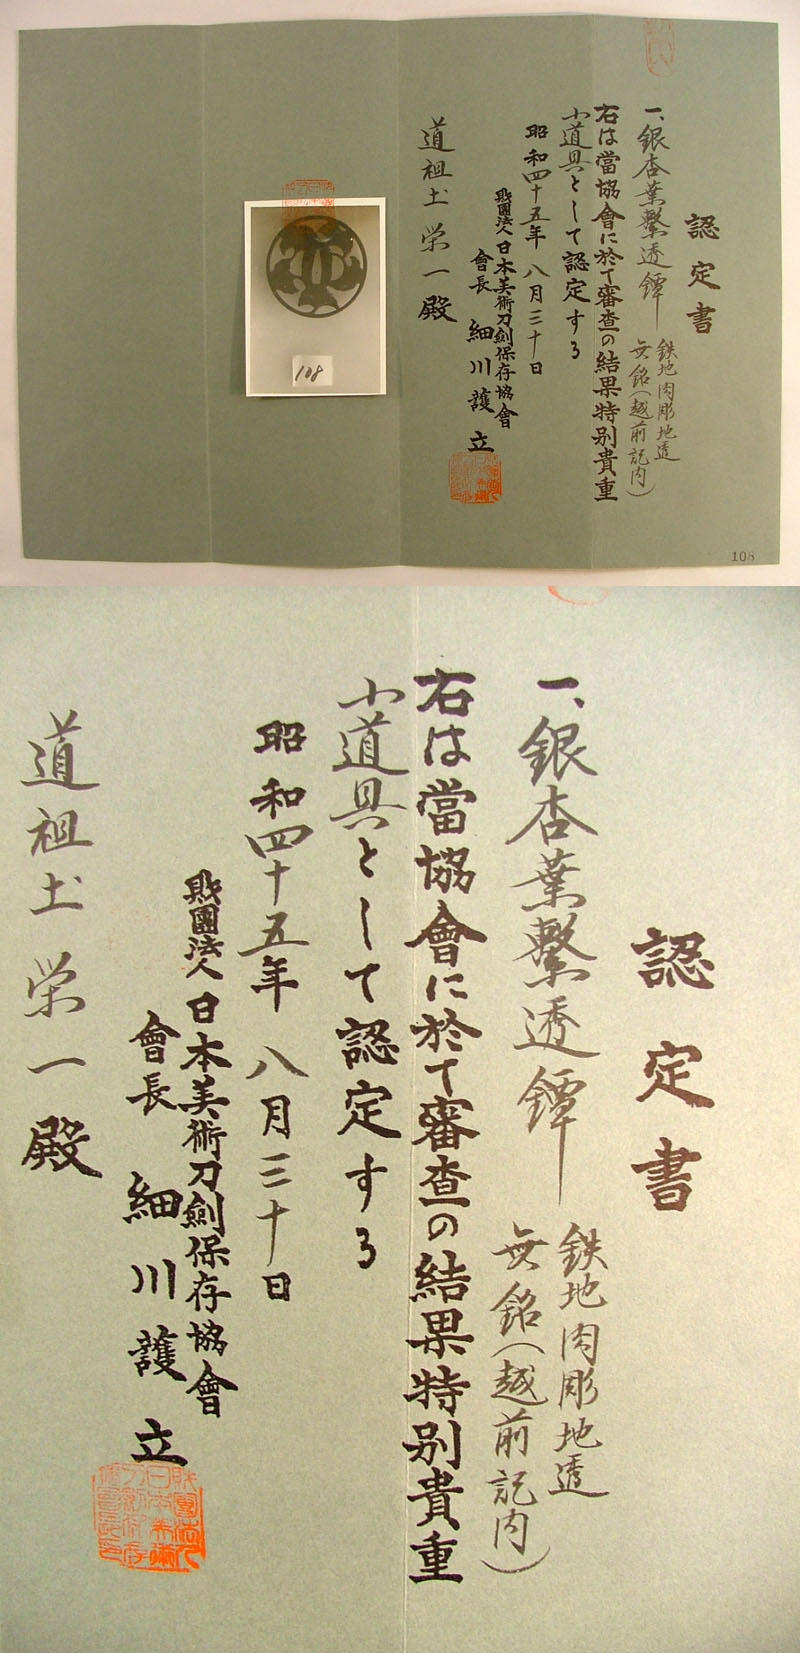 認定書
一、銀杏葉繋透鐔
鉄地肉彫地透
無銘(越前記内)
右は當協會に於て審査の結果特別貴重
小道具として認定する
昭和四十五年八月三十日
財團法人日本美術刀劍保存協會
會長 細川護立
道祖土栄一殿
108
108
認定書
一、銀杏葉繋透鐔
鉄地肉彫地透
無銘(越前記内)
右は當協會に於て審査の結果特別貴重
小道具として認定する
昭和四十五年八月三十日
財團法人日本美術刀劍保存協會
會長 細川護立
道祖土栄一殿